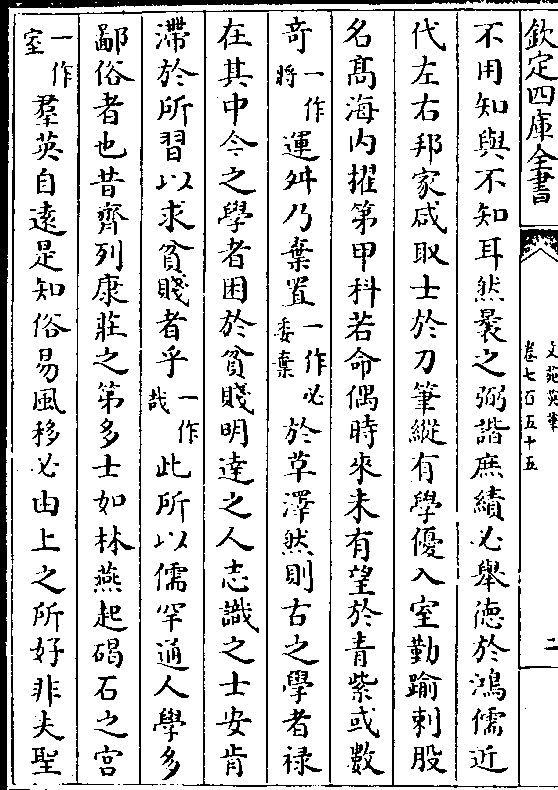 欽定四庫全書
文苑英華
卷七百五十五
二
不用知與不知耳然曩之弼諧庶績必舉德於鴻儒近
代左右邦家咸取士於刀筆縱有學優入室勤踰刺股
名髙海内擢第甲科若命偶時來未有望於青紫或數
竒一作將運舛乃棄置一作必委棄於草澤然則古之學者禄
在其中今之學者困於貧賤明達之人志識之士安肯
滯於所習以求貧賤者乎一作哉此所以儒罕通人學多
鄙俗者也昔齊列康莊之第多士如林燕起碣石之宫
一作室羣英自遠是知俗易風移必由上之所好非夫聖